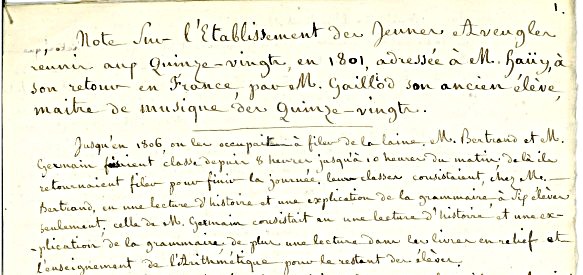 1.
Note Sur l'Etablissement des Jeunes Aveugles
reunis aux Quinze-vingts, en 1801, adressée à M. Haüy, à
son retour en France, par M. Gaillod son ancien élève,
maitre de musique des Quinze-vingts.
Jusqu'en 1806, on les occupait à filer de la laine, M. Bertrand et M.
Germain faisaient classe depuis 8 heures jusqu'à 10 heures du matin de là ils
retournaient filer pour finir la journée, leurs classes consistaient, chez M.
Bertrand, en une lecture d'histoire et une explication de la grammaire à Six élèves
seulement, celle de M. Germain consistait en une lecture d'histoire et une ex-
-plication de la grammaire de plus une lecture dans les livres en relief et
l'enseignement de l'Arithmétique pour le restant des élèves.